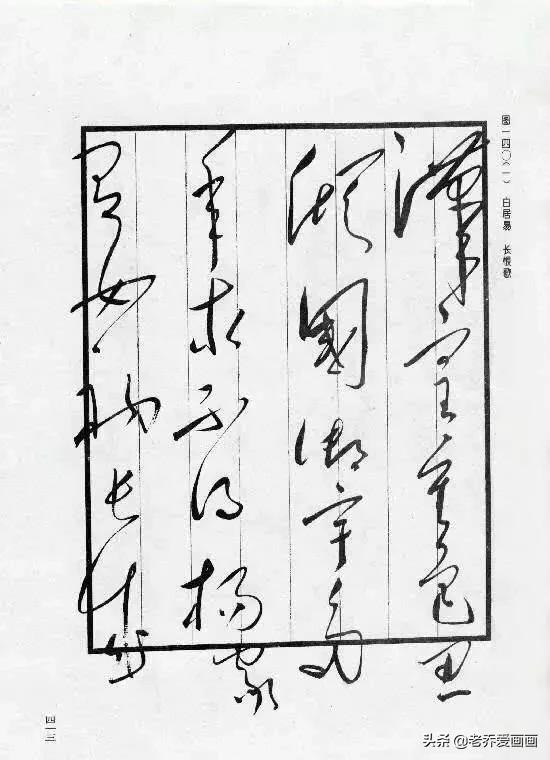 图一四〇(一) 白居易 长恨歌
漢皇重色思
傾國御宇多
年求不得楊家
有女初長成
四一三
头条 @老乔爱画画